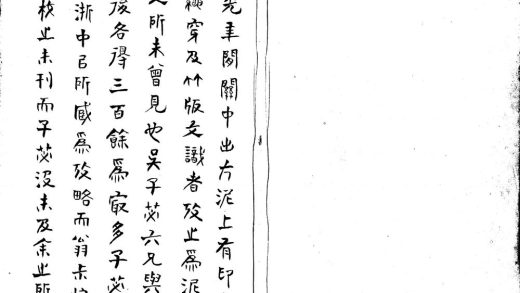 光年閒關中出片泥上有印
繩穿及竹版文識者攷之爲泥
所未曾見也吳子苾六兄與
後各得三百餘爲㝡多子苾
浙中㠯所臧爲攷略而翁未
校之未刊而子苾沒未及余之所